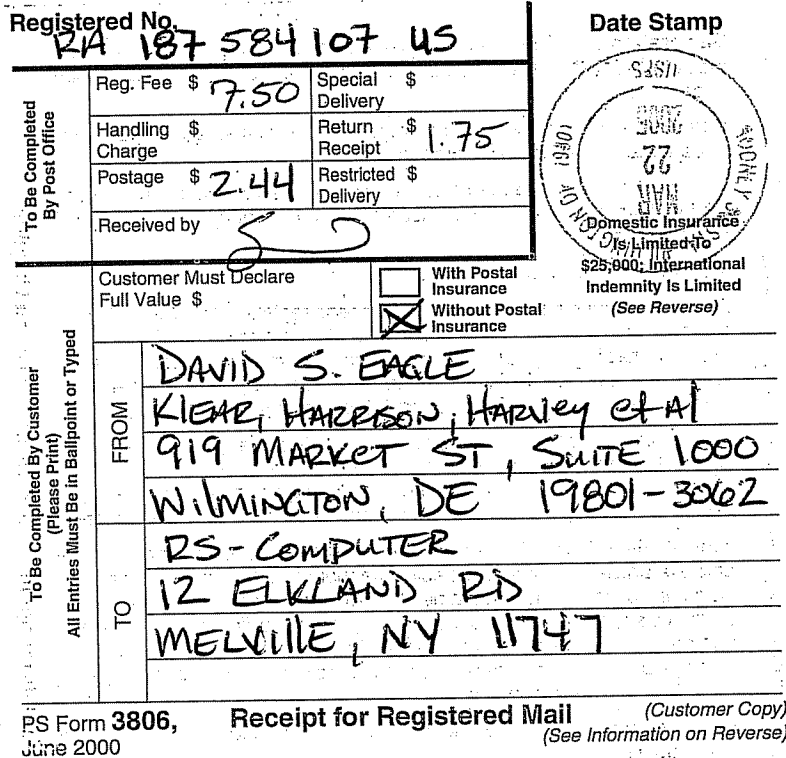 Registered No.
RA 187 584 107 US
Date Stamp
To Be Completed
By Post Office
Reg. Fee $ 7.50
Special $
Delivery
Handling $
Charge
Return $ 1.75
Receipt
Postage $ 2.44
Restricted $
Delivery
Received by
USPS
2006
22
MAR
RODNEY SQ
Domestic Insurance
Is Limited To
$25,000; International
Indemnity Is Limited
(See Reverse)
Customer Must Declare
Full Value $
With Postal
Insurance
Without Postal
Insurance
To Be Completed By Customer
(Please Print)
All Entries Must Be in Ballpoint or Typed
FROM
DAVID S. EAGLE
KlEHR, HARRISON, HARVEY et Al
919 MARKET ST, SUITE 1000
WilMINGTON, DE 19801-3062
TO
RS-COMPUTER
12 ELKLAND RD
MELVIllE, NY 11747
PS Form 3806,
June 2000
Receipt for Registered Mail
(Customer Copy)
(See Information on Reverse)